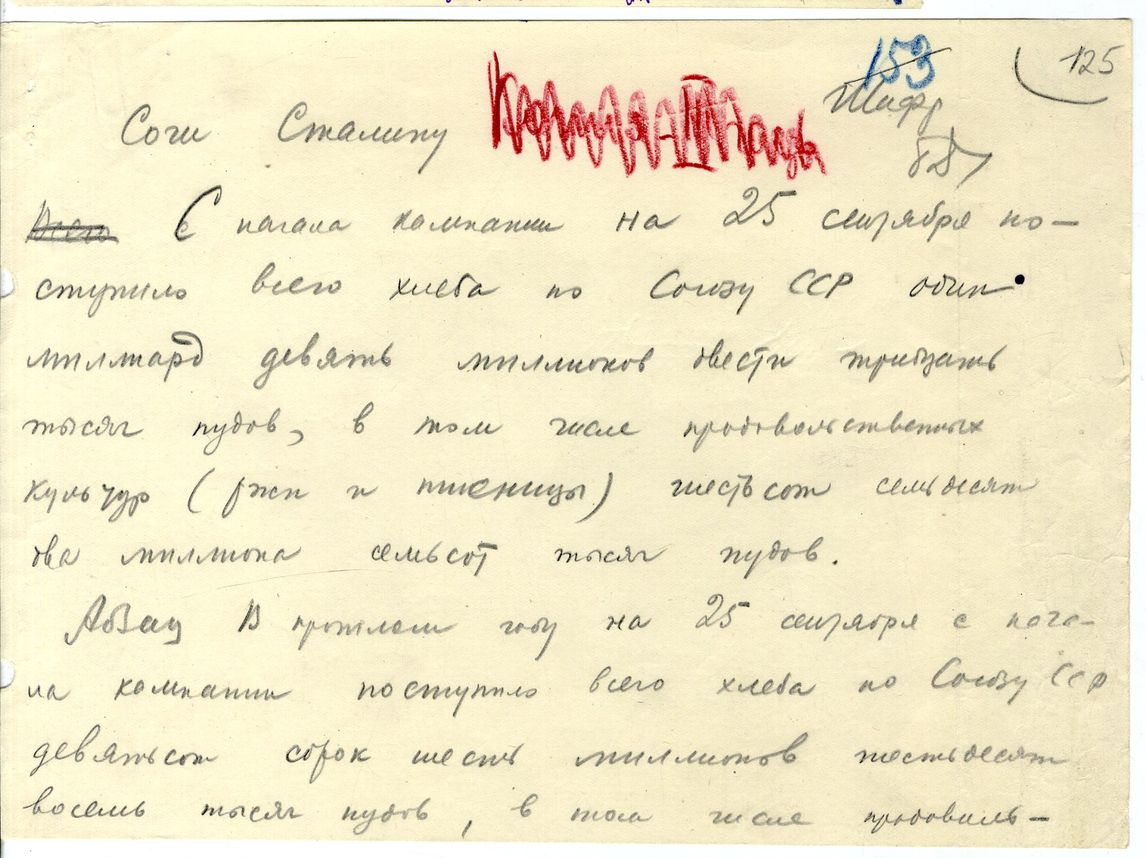 153
125
Шифр
Сочи Сталину
Всего С начала кампании на 25 сентября по-
ступило всего хлеба по Союзу ССР один
миллиард девять миллионов двести тридцать
тысяч пудов, в том числе продовольственных
культур (ржи и пшеницы) шестьсот семьдесят
два миллиона семьсот тысяч пудов.
Абзац В прошлом году на 25 сентября с нача-
ла кампании поступило всего хлеба по Союзу ССР
девятьсот сорок шесть миллионов шестьдесят
восемь тысяч пудов, в том числе продоволь-